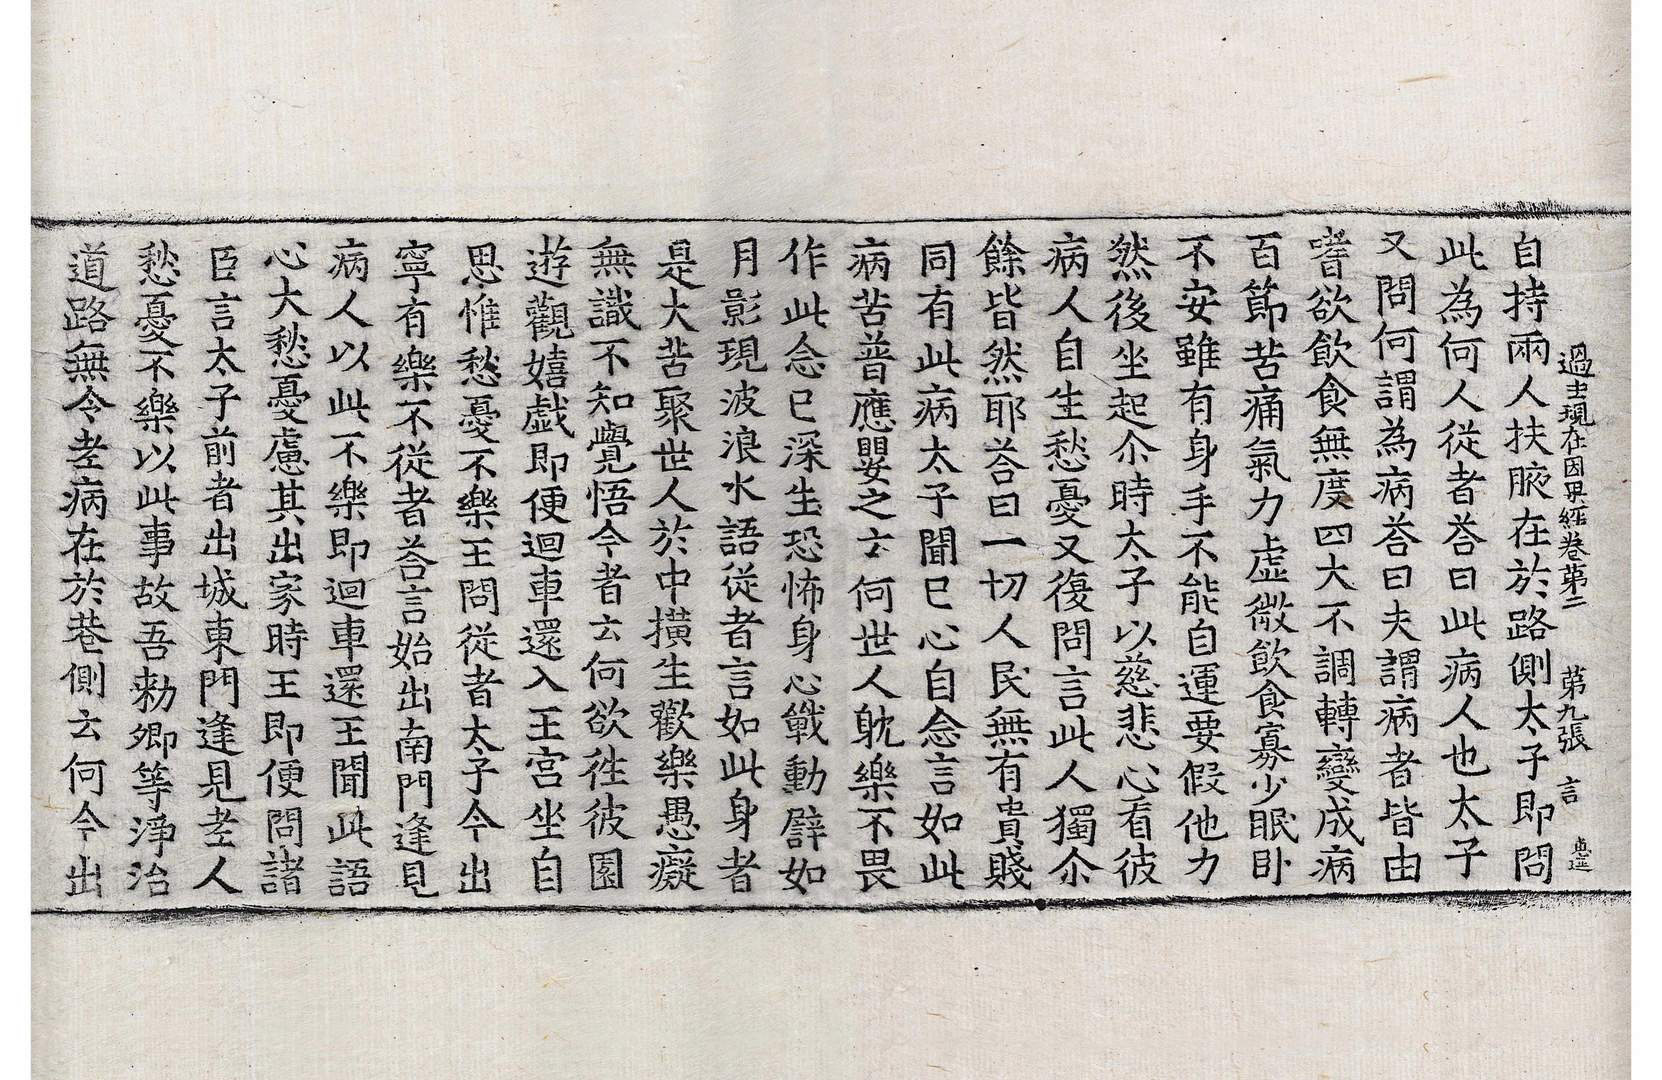 過去現在因果經卷第二 第九張 言
自持兩人扶腋在於路側太子即問
此為何人從者荅曰此病人也太子
又問何謂為病荅曰夫謂病者皆由
嗜欲飲食無度四大不調轉變成病
百節苦痛氣力虛微飲食寡少眠卧
不安雖有身手不能自運要假他力
然後坐起尒時太子以慈悲心看彼
病人自生愁憂又復問言此人獨尒
餘皆然耶荅曰一切人民無有貴賤
同有此病太子聞已心自念言如此
病苦普應嬰之云何世人躭樂不畏
作此念已深生恐怖身心戰動譬如
月影現波浪水語從者言如此身者
是大苦聚世人於中撗生歡樂愚癡
無識不知覺悟今者云何欲往彼園
遊觀嬉戲即便迴車還入王宮坐自
思惟愁憂不樂王問從者太子今出
寧有樂不從者荅言始出南門逢見
病人以此不樂即迴車還王聞此語
心大愁憂慮其出家時王即便問諸
臣言太子前者出城東門逢見老人
愁憂不樂以此事故吾勑卿等淨治
道路無令老病在於巷側云何今出